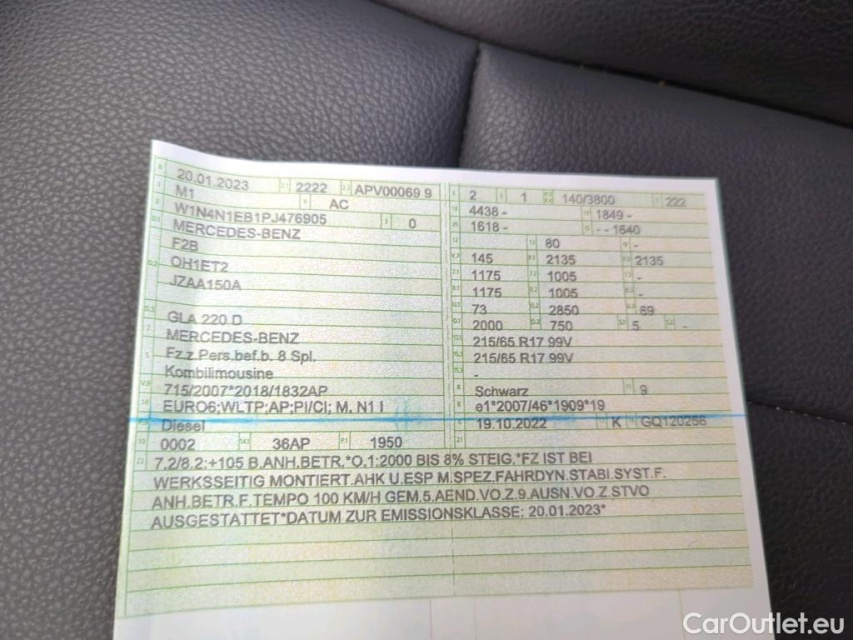 20.01.2023 2222 APV00069 9 2 1 140/3800 222
M1 AC 4438 - 1849 -
W1N4N1EB1PJ476905 0 1618 - - - 1640
MERCEDES-BENZ 80 -
F2B 145 2135 2135
OH1ET2 1175 1005 -
JZAA150A 1175 1005 -
73 2850 69
GLA 220 D 2000 750 5 -
MERCEDES-BENZ 215/65 R17 99V
Fz.z.Pers.bef.b. 8 Spl. 215/65 R17 99V
Kombilimousine -
715/2007*2018/1832AP Schwarz 9
EURO6;WLTP;AP;PI/CI; M, N1 I e1*2007/46*1909*19
Diesel 19.10.2022 K GQ120256
0002 36AP 1950
7.2/8.2:+105 B.ANH.BETR.*O.1:2000 BIS 8% STEIG.*FZ IST BEI
WERKSSEITIG MONTIERT.AHK U.ESP M.SPEZ.FAHRDYN.STABI.SYST.F.
ANH.BETR.F.TEMPO 100 KM/H GEM.5.AEND.VO.Z.9.AUSN VO.Z STVO
AUSGESTATTET*DATUM ZUR EMISSIONSKLASSE: 20.01.2023*
CarOutlet.eu